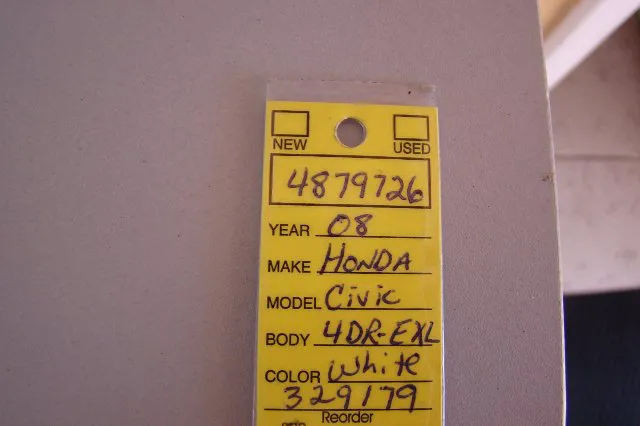 NEW USED
4879726
YEAR 08
MAKE HONDA
MODEL Civic
BODY 4DR-EXL
COLOR White
329179
Reorder